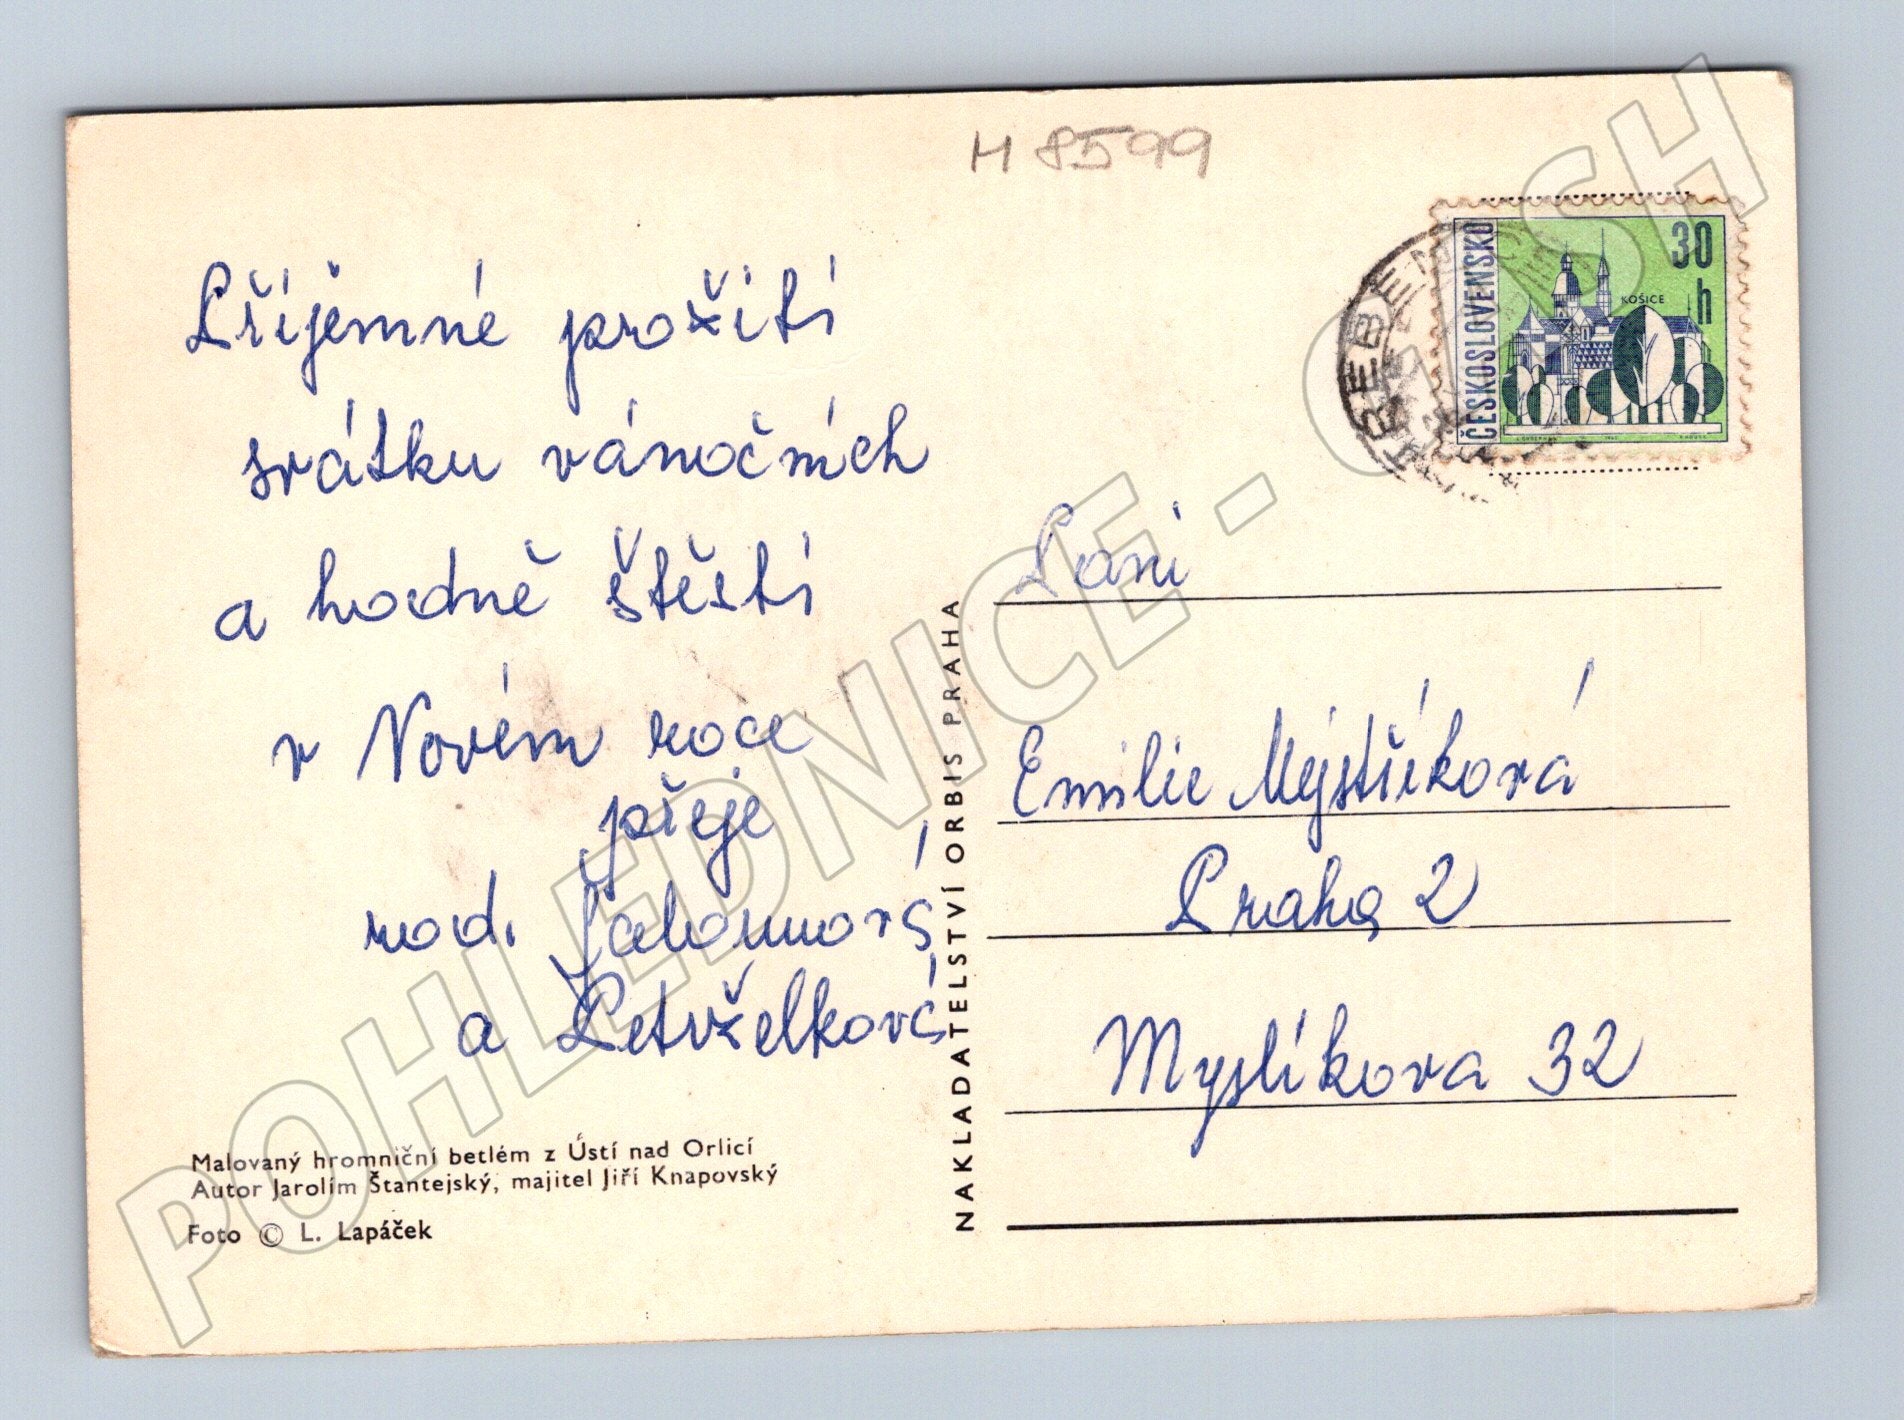 M 8599
Příjemné prožití
svátku vánočních
a hodně štěstí
v Novém roce
přeje
rod.
a
Malovaný hromniční betlém z Ústí nad Orlicí
Autor Jarolím Štantejský, majitel Jiří Knapovský
Foto © L. Lapáček
NAKLADATELSTVÍ ORBIS PRAHA
ČESKOSLOVENSKO
30
h
KOŠICE
Paní
Emilie Mejstříková
Praha 2
Myslíkova 32
POHLEDNICE - CASH